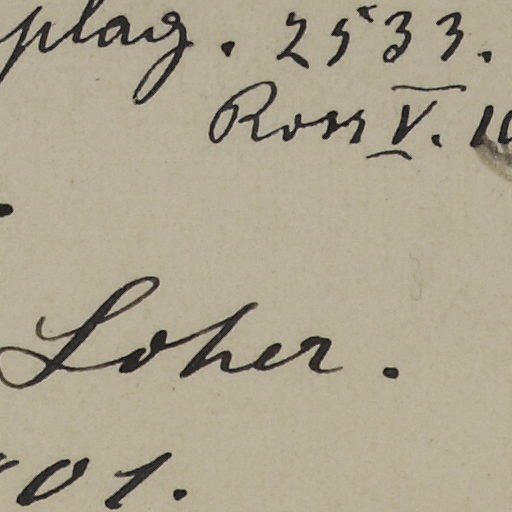 plag. 2533.
Ross V. 10
Loher.
01.